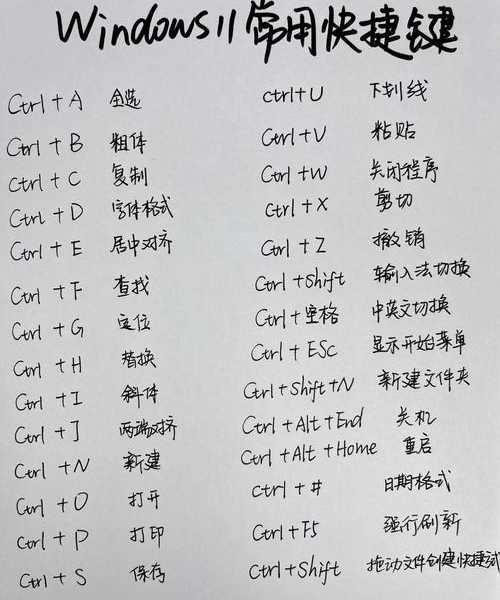 Windows11常用快捷键
Ctrl + A 全选
Ctrl + B 粗体
Ctrl + C 复制
Ctrl + D 字体格式
Ctrl + E 居中对齐
Ctrl + F 查找
Ctrl + G 定位
Ctrl + H 替换
Ctrl + I 斜体
Ctrl + J 两端对齐
Ctrl + N 新建
Ctrl + O 打开
Ctrl + P 打印
Ctrl + S 保存
Ctrl+U 下划线
Ctrl+V 粘贴
Ctrl+W 关闭程序
Ctrl+X 剪切
Ctrl + Z 撤销
Ctrl+Shift 输入法切换
Ctrl+空格 中英文切换
Ctrl + ESc 显示开始菜单
Ctrl+Shift+N 新建文件夹
Ctrl+Alt+End 关机
Ctrl+Alt+Home 重启
Ctrl + # 日期格式
Ctrl+F5 强行刷新
Ctrl+Shift 拖动文件创建快捷试